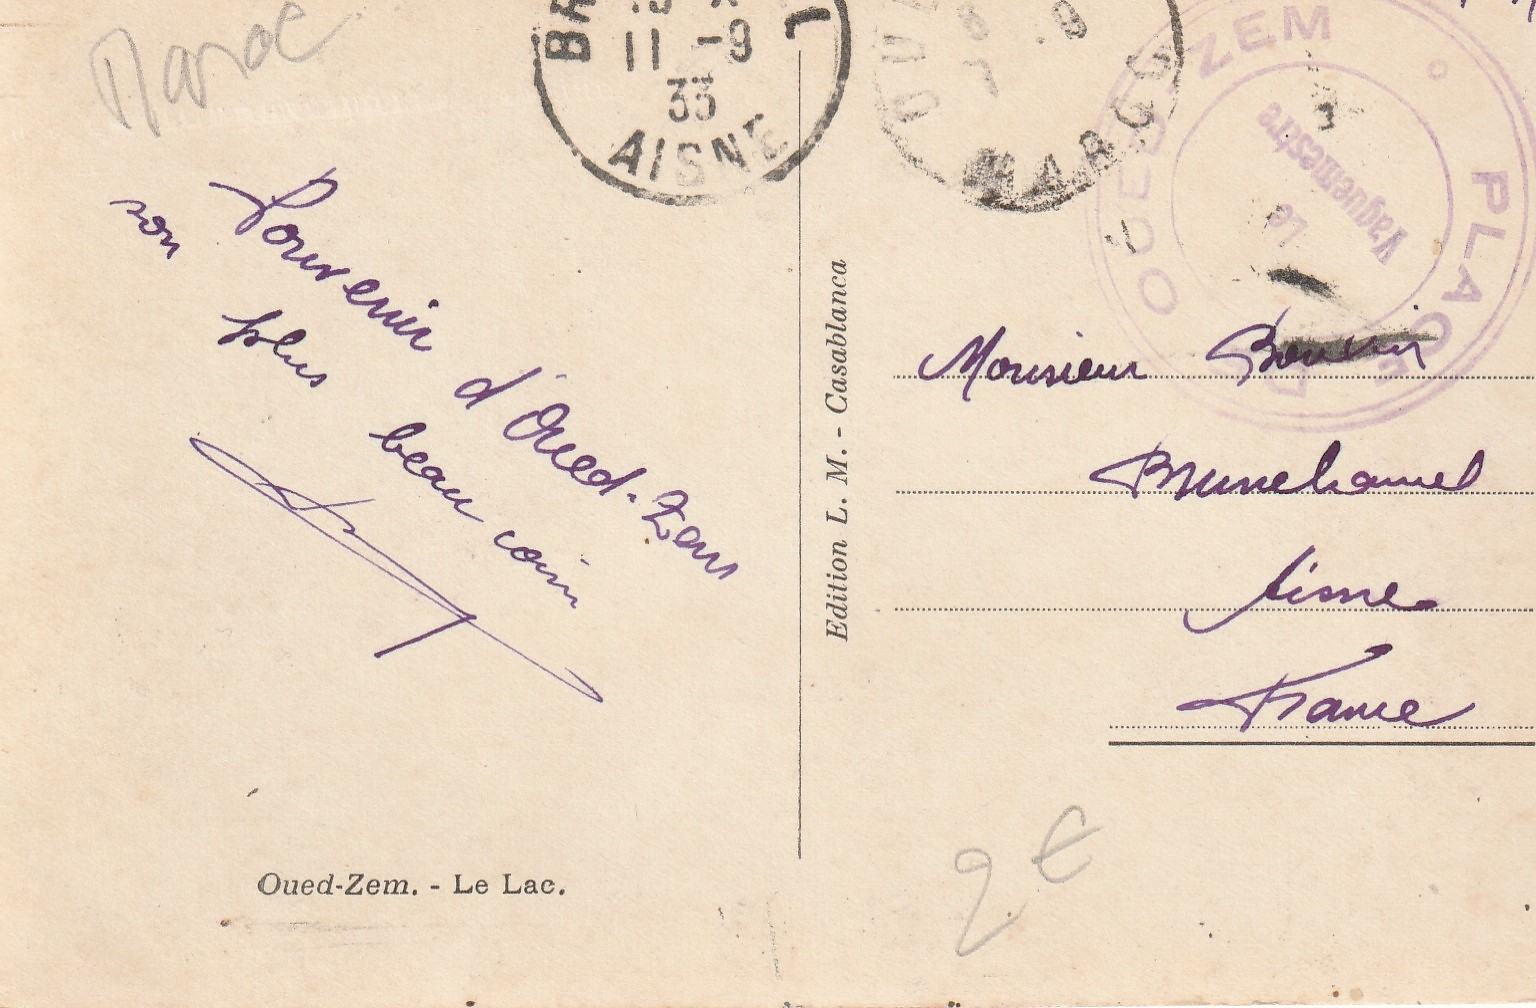 Maroc
11 -9
33
AISNE
MAROC
OUED-ZEM
PLACE
Le
Vaguemestre
Souvenir d'Oued-Zem
son plus beau coin
Edition L. M. - Casablanca
Monsieur
Brunehamel
Aisne
France
Oued-Zem. - Le Lac.
2 €